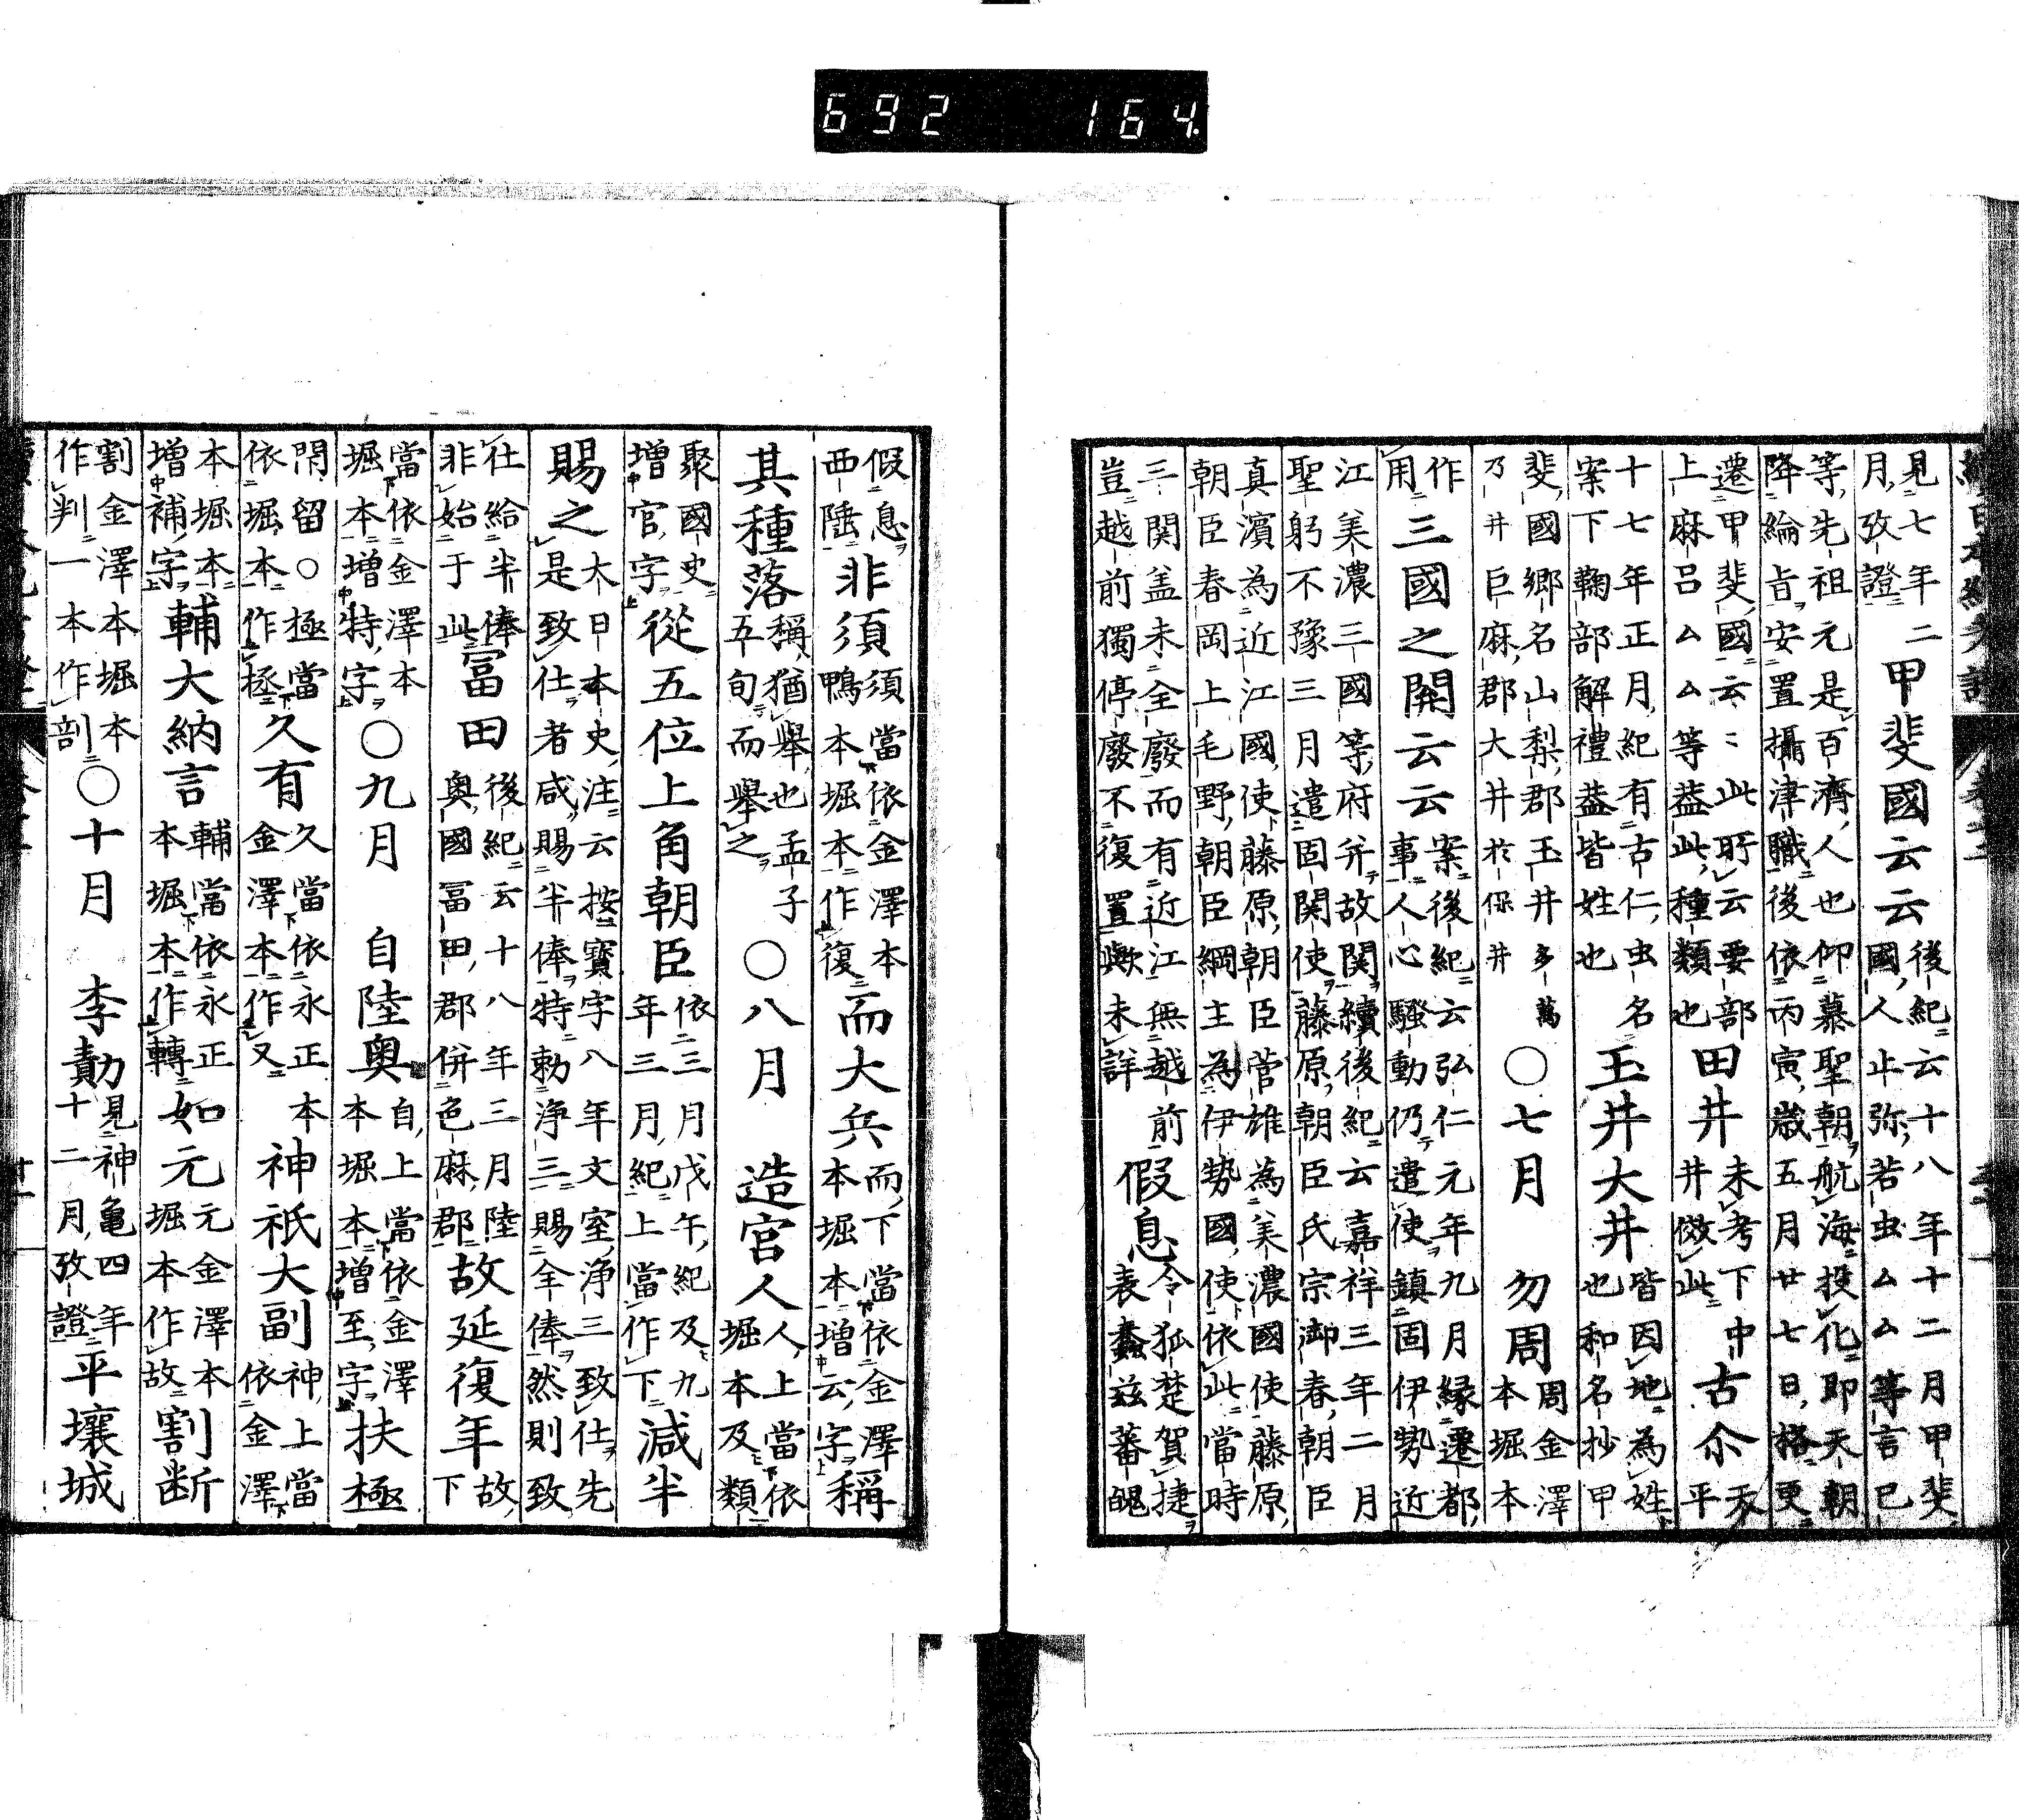 692 164
見七年二
月攷證
甲斐國云云
後紀云十八年十二月甲斐
國人止弥若虫ムム等言己
等先祖元是百濟人也仰慕聖朝航海投化即天朝
降綸旨安置攝津職後依丙寅歳五月廿七日格更
遷甲斐國云云此盱云要部
上麻呂ムム等益此種類也
田井
未考下中
井倣此
古尒
天平
十七年正月紀有古仁虫名
案下鞠部解禮益皆姓也
玉井大井
皆因地為姓
也和名抄甲
斐國郷名山梨郡玉井多萬
乃井巨麻郡大井於保井
○七月
勿周
周金澤
本堀本
作
用
三國之關云云
案後紀云弘仁元年九月縁遷都
事人心騒動仍遣使鎮固伊勢近
江美濃三國等府并故関續後紀云嘉祥三年二月
聖躬不豫三月遣固関使藤原朝臣氏宗御春朝臣
真濱為近江國使藤原朝臣菅雄為美濃國使藤原
朝臣春岡上毛野朝臣綱主為伊勢國使依此當時
三関盖未全廢而有近江無越前
豈越前獨停廢不復置歟未詳
假息
令狐楚賀捷
表蠢玆蕃醜
假息
西陲
非須
須當依金澤本
鴨本堀本作復
而大兵
而下當依金澤
本堀本増云字
稱
其種落
稱猶舉也孟子
五旬而舉之
○八月
造宮人
人上當依
堀本及類
聚國史
増官字
從五位上角朝臣
依三月戊午紀及九
年三月紀上當作下
減半
賜之
大日本史注云按寳字八年文室浄三致仕先
是致仕者咸賜半俸特勅浄三賜全俸然則致
仕給半俸
非始于此
冨田
後紀云十八年三月陸
奥國冨田郡併色麻郡
故延復年
故
下
當依金澤本
堀本増特字
○九月
自陸奥
自上當依金澤
本堀本増至字
扶極
閇留○極當
依堀本作拯
久有
久當依永正本
金澤本作又
神祇大副
神上當
依金澤
本堀本
増補字
輔大納言
輔當依永正
本堀本作轉
如元
元金澤本
堀本作故
割断
割金澤本堀本
作判一本作剖
○十月
李勣
見神亀四年
十二月攷證
平壤城